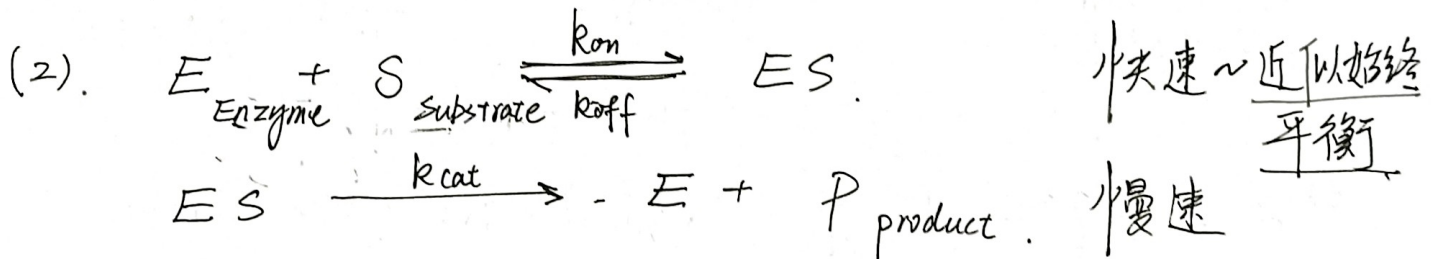 (2). E Enzyme + S substrate kon koff ES. 快速~近似始终
平衡
ES kcat E + P product. 慢速